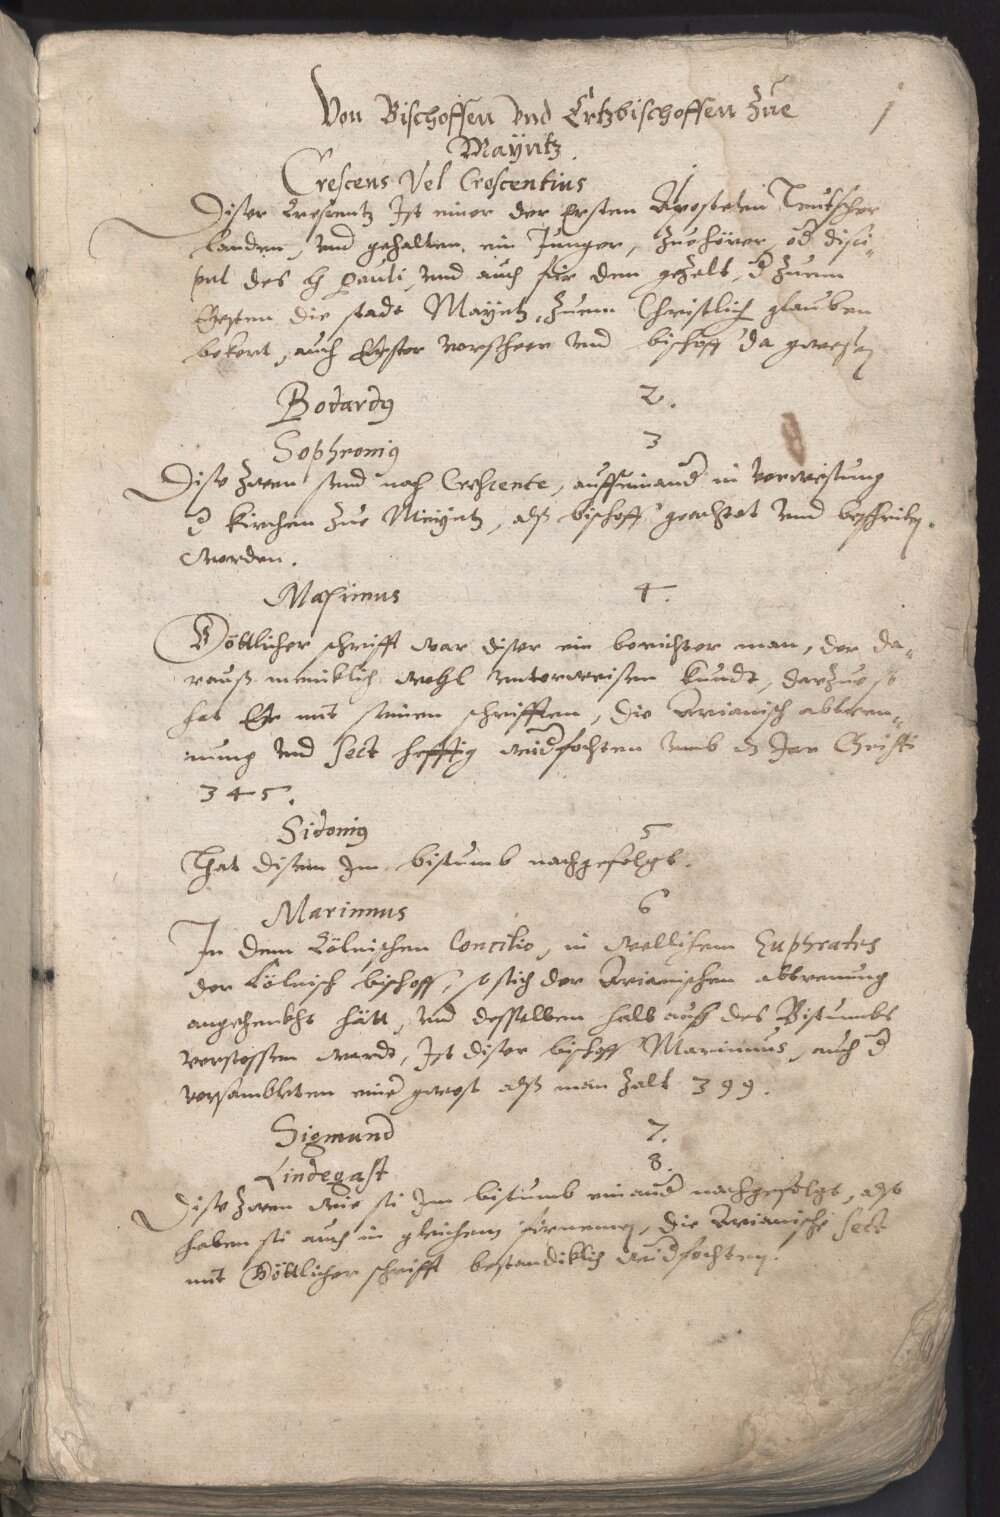 Von Bischoffen vnd Ertzbischoffen Zue
1
Mayntz.
Crescens Vel Crescentius 1
Diser Crescentz Ist einer der Ersten Apostelen Teutscher
landen, vnd gehalten, ein Junger, Zuehörer, od disci-
pul des H Pauli, vnd auch für den gezelt, d Zuem
Ersten die stadt Mayntz, Zuem Christlich glauben
bekert, auch Erster vorsteer vnd bischoff da gewesen
Bodardus 2.
Sophronius 3
Dise Zwen sind nach Crescente, auffeinand in verwesung
d Kirchen Zue Meyntz, alß bischoff geachtet vnd beschriben
worden.
Maximus 4.
Göttlicher schrifft war diser ein berichter man, der da-
rauß meniklich wohl vnterweißen kundt, darzue so
hat Er mit seinen schrifften, die Arianisch abtren-
nung vnd Sect hefftig widfochten vmb dz Jar Christi
345.
Sidonius 5
That disem Im bistumb nachgefolgt.
Marinus 6
In dem Cölnischen Concilio, in wellichem Euphrates
der Cölnisch bischoff, so sich der Arianischen abtrenung
angehenkht hätt, vnd desselben halb auß des Bistumbs
verstossen wardt, Ist diser bischoff Marinnus, auch d
versambleten einer gwest alß man Zalt 399.
Sigmund 7.
Lindegast 8.
Dise Zwen wie sie Im bistumb einand nachgefolgt, also
haben sie auch in gleichem fürnemen, die Arianische Sect
mit Göttlicher schrifft bestandiklich widfochten.